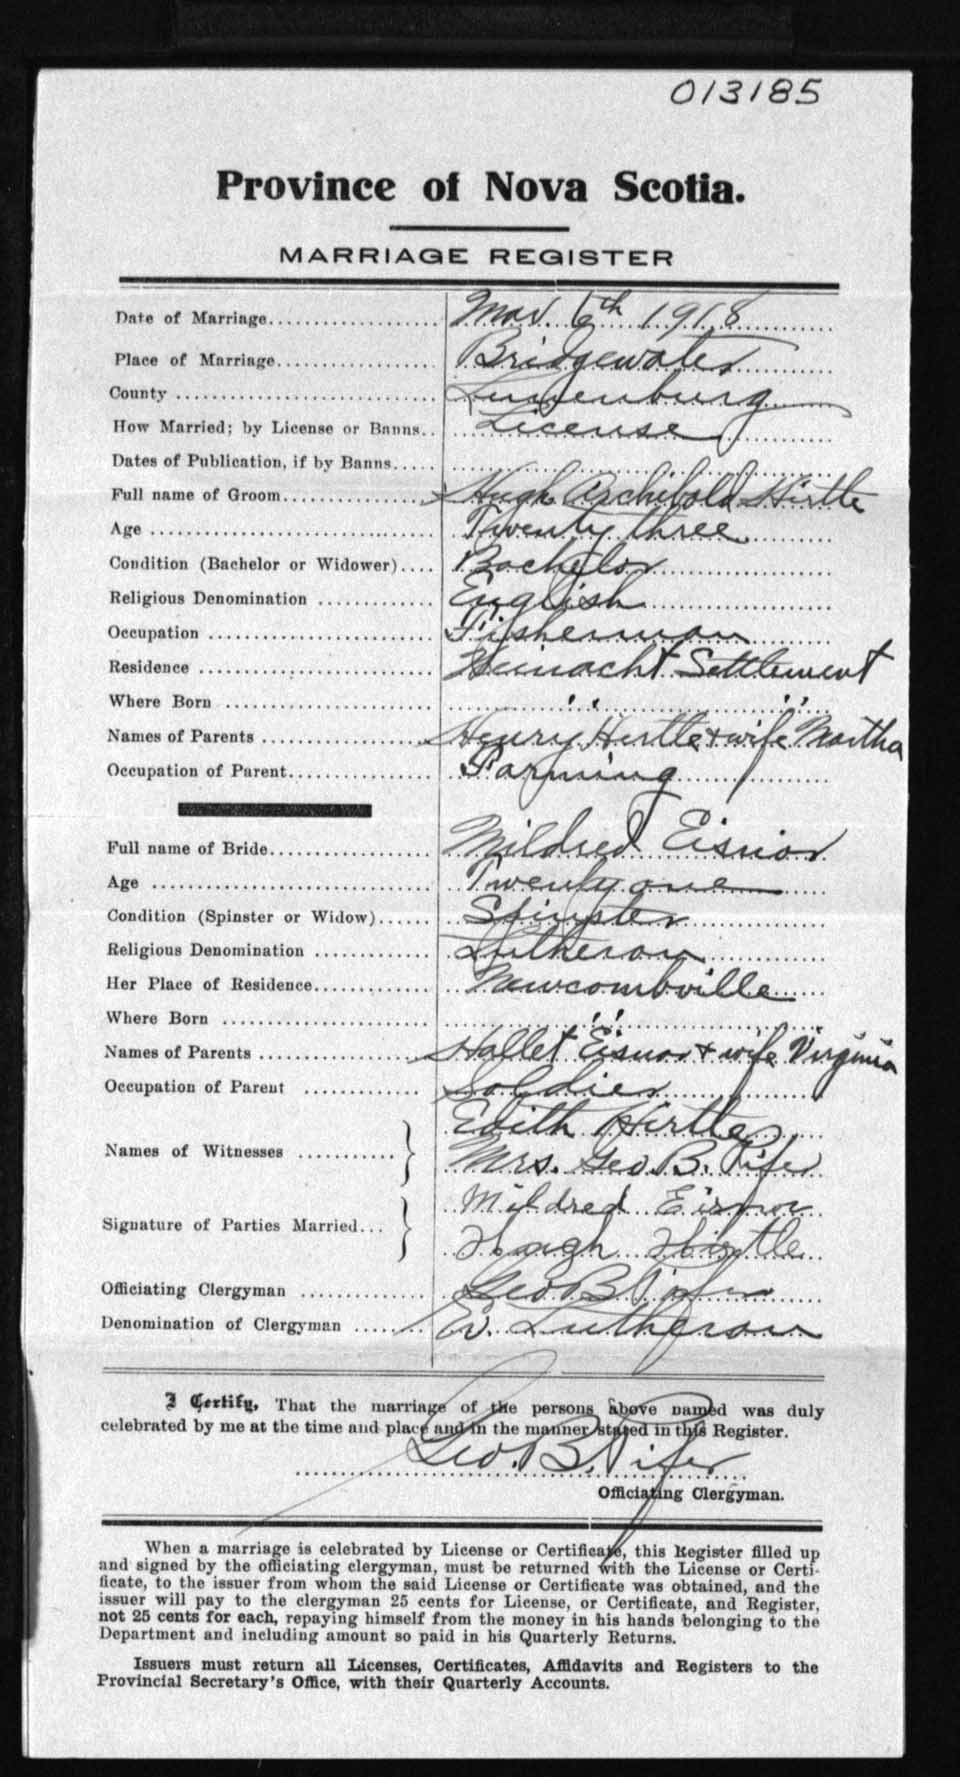 013185
Province of Nova Scotia.
MARRIAGE REGISTER
Date of Marriage.................. Mar. 6th 1918
Place of Marriage................. Bridgewater
County ........................... Lunenburg
How Married; by License or Banns.. License
Dates of Publication, if by Banns.....
Full name of Groom................ Hugh Archibald Hirtle
Age .............................. Twenty three
Condition (Bachelor or Widower).... Bachelor
Religious Denomination ............ English
Occupation ....................... Fisherman
Residence ........................ Heinacht Settlement
Where Born ....................... " "
Names of Parents ................. Henry Hirtle & wife Martha
Occupation of Parent.............. Farming
Full name of Bride................ Mildred Eisnor
Age .............................. Twenty one
Condition (Spinster or Widow)...... Spinster
Religious Denomination ............ Lutheran
Her Place of Residence............. Newcombville
Where Born ....................... "
Names of Parents ................. Hallet Eisnor & wife Virginia
Occupation of Parent ............. Soldier
Names of Witnesses ........... } Edith Hirtle
Mrs. Geo. B. Pifer
Signature of Parties Married... } Mildred Eisnor
Hugh Hirtle
Officiating Clergyman ............ Geo B Pifer
Denomination of Clergyman ....... Ev. Lutheran
I Certify, That the marriage of the persons above named was duly
celebrated by me at the time and place and in the manner stated in this Register.
Geo. B. Pifer
Officiating Clergyman.
When a marriage is celebrated by License or Certificate, this Register filled up
and signed by the officiating clergyman, must be returned with the License or Certi-
ficate, to the issuer from whom the said License or Certificate was obtained, and the
issuer will pay to the clergyman 25 cents for License, or Certificate, and Register,
not 25 cents for each, repaying himself from the money in his hands belonging to the
Department and including amount so paid in his Quarterly Returns.
Issuers must return all Licenses, Certificates, Affidavits and Registers to the
Provincial Secretary's Office, with their Quarterly Accounts.